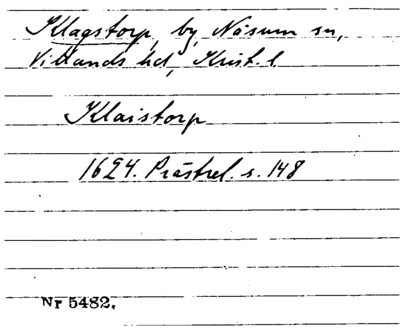 Klagstorp, by, Näsum sn,
Villands hd, Krist. l
Klaistorp
1624. Prästrel. s. 148
Nr 5482.